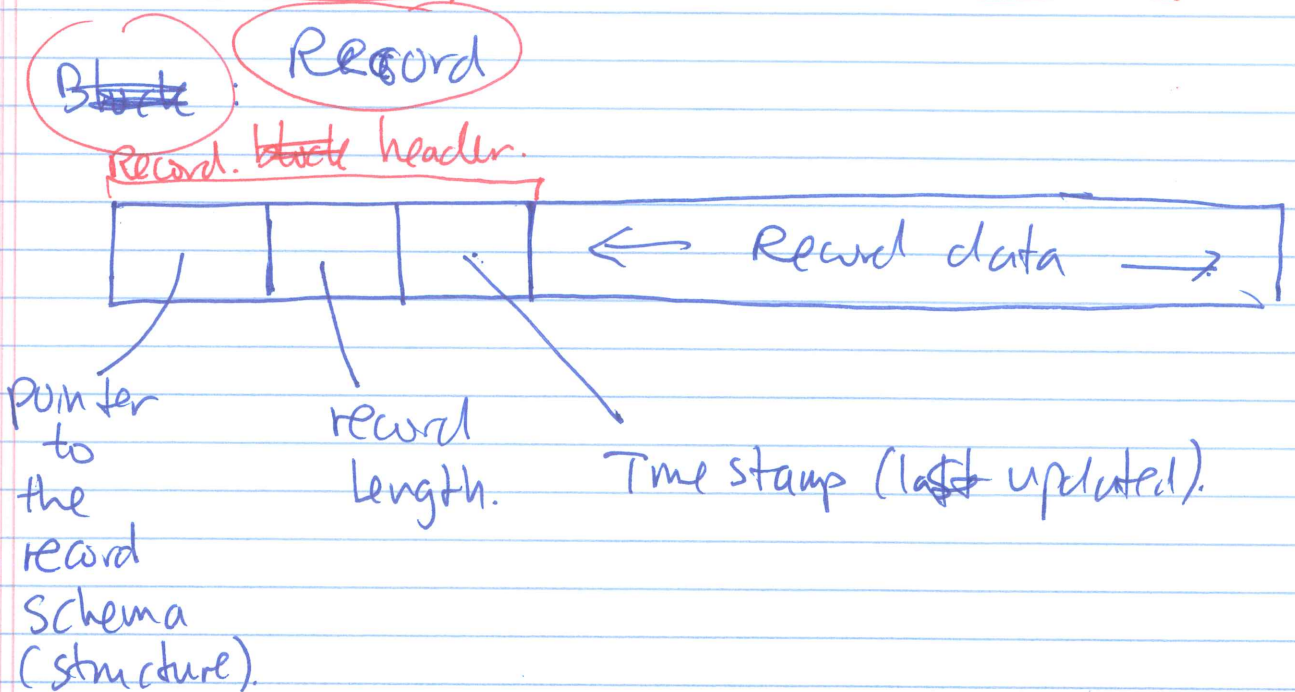 Block: Record
Record. block header.
← Record data →
pointer
to
the
record
schema
(structure).
record
Length.
Time stamp (last updated).